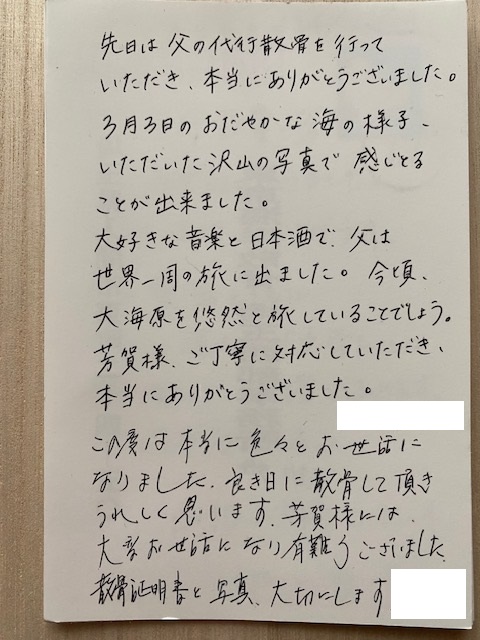 先日は父の代行散骨を行って
いただき、本当にありがとうございました。
3月3日のおだやかな海の様子、
いただいた沢山の写真で感じとる
ことが出来ました。
大好きな音楽と日本酒で、父は
世界一周の旅に出ました。今頃、
大海原を悠然と旅していることでしょう。
芳賀様、ご丁寧に対応していただき、
本当にありがとうございました。
この度は本当に色々とお世話に
なりました。良き日に散骨して頂き
うれしく思います。芳賀様には、
大変お世話になり有難うございました。
散骨証明書と写真、大切にします